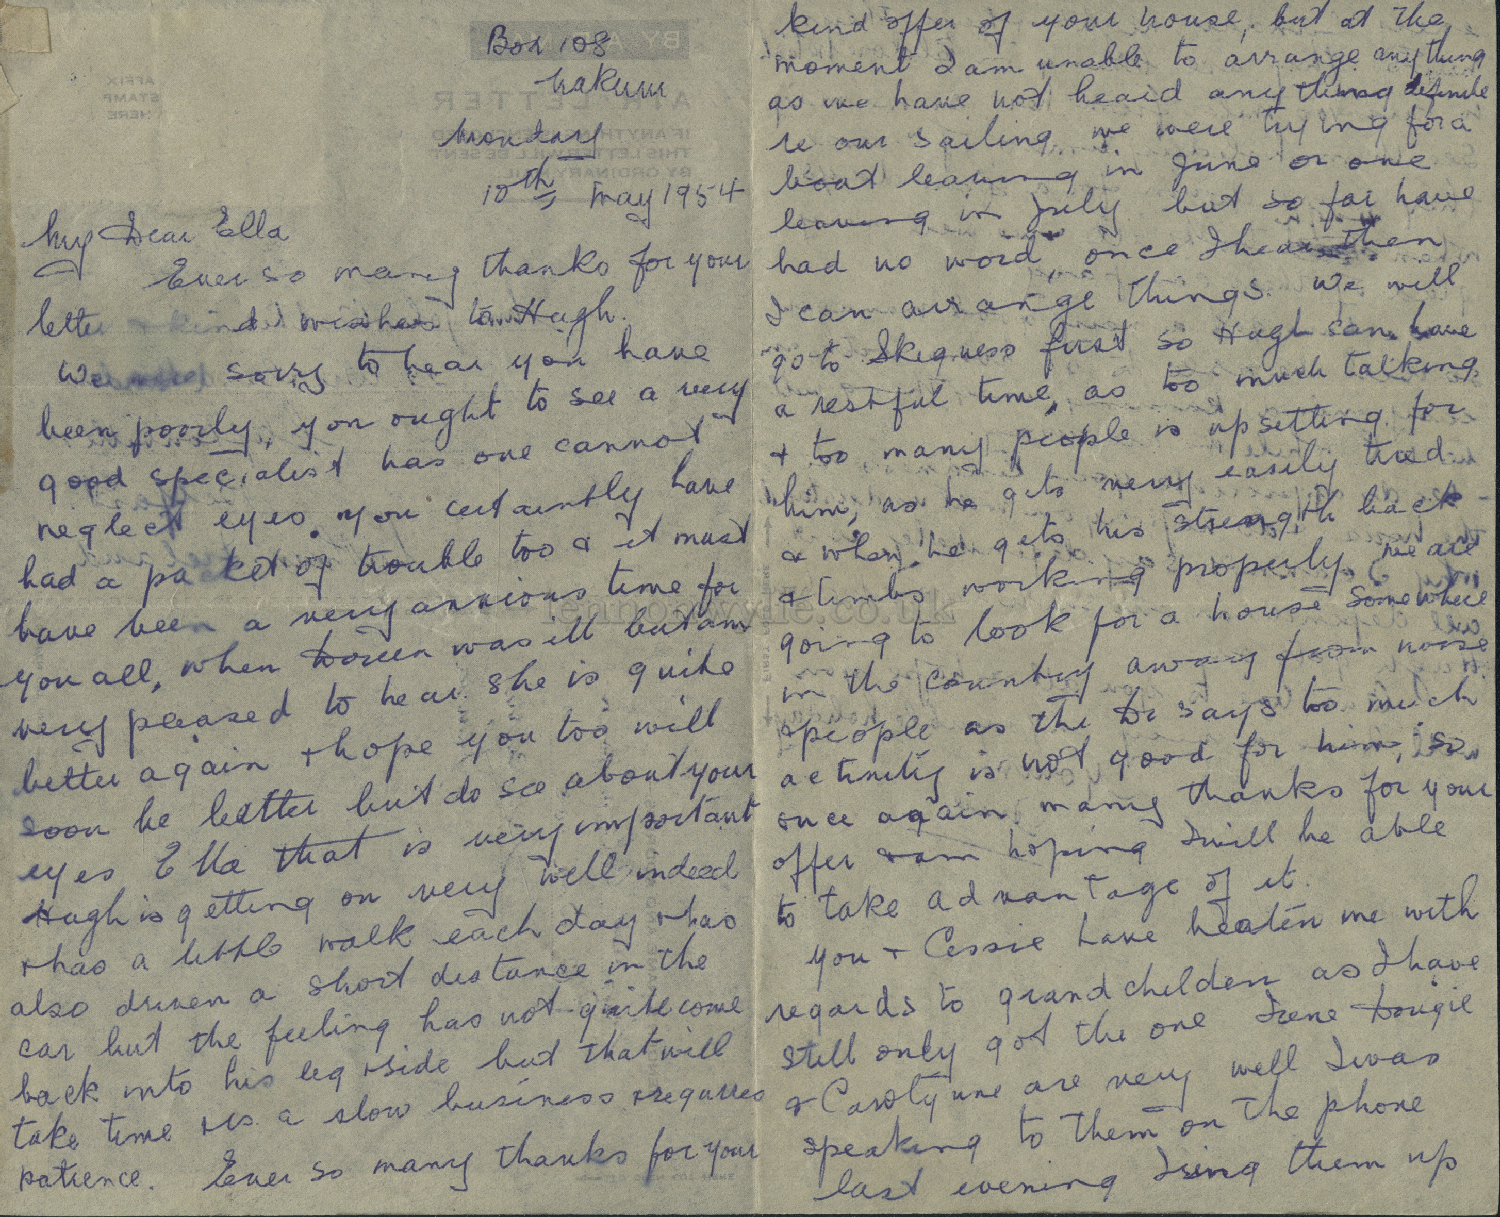 Box 108
Nakuru
Monday
10th May 1954
My Dear Ella
Ever so many thanks for your
letter & kind wishes to Hugh.
We sorry to hear you have
been poorly, you ought to see a very
good specialist has one cannot
neglect eyes. you certaintly have
had a packet of trouble too & it must
have been a very anxious time for
you all, when Doreen was ill but am
very pleased to hear she is quite
better again & hope you too will
soon be better but do see about your
eyes Ella that is very important
Hugh is getting on very well indeed
& has a little walk each day & has
also driven a short distance in the
car but the feeling has not quite come
back into his leg & side but that will
take time & is a slow business & requires
patience. Ever so many thanks for your
kind offer of your house, but at the
moment I am unable to arrange anything
as we have not heard anything definite
re our sailing we were trying for a
boat leaving in June or one
leaving in July but so far have
had no word, once I hear then
I can arrange things. We will
go to Skegness first so Hugh can have
a restful time, as too much talking
& too many people is upsetting for
him, as he gets very easily tired
& when he gets his strength back
& limbs working properly we are
going to look for a house somewhere
in the country away from noise
& people as the Dr says too much
activity is not good for him, so
once again many thanks for your
offer & am hoping I will be able
to take advantage of it.
you & Cessie have beaten me with
regards to grandchildern as I have
still only got the one Irene Dougie
& Carolyne are very well I was
speaking to them on the phone
last evening I ring them up
BY AIR
AIR LETTER
AFFIX
STAMP
HERE
IF ANYTHING
THIS LETTER WILL BE SENT
BY ORDINARY MAIL
tennantwylie.co.uk